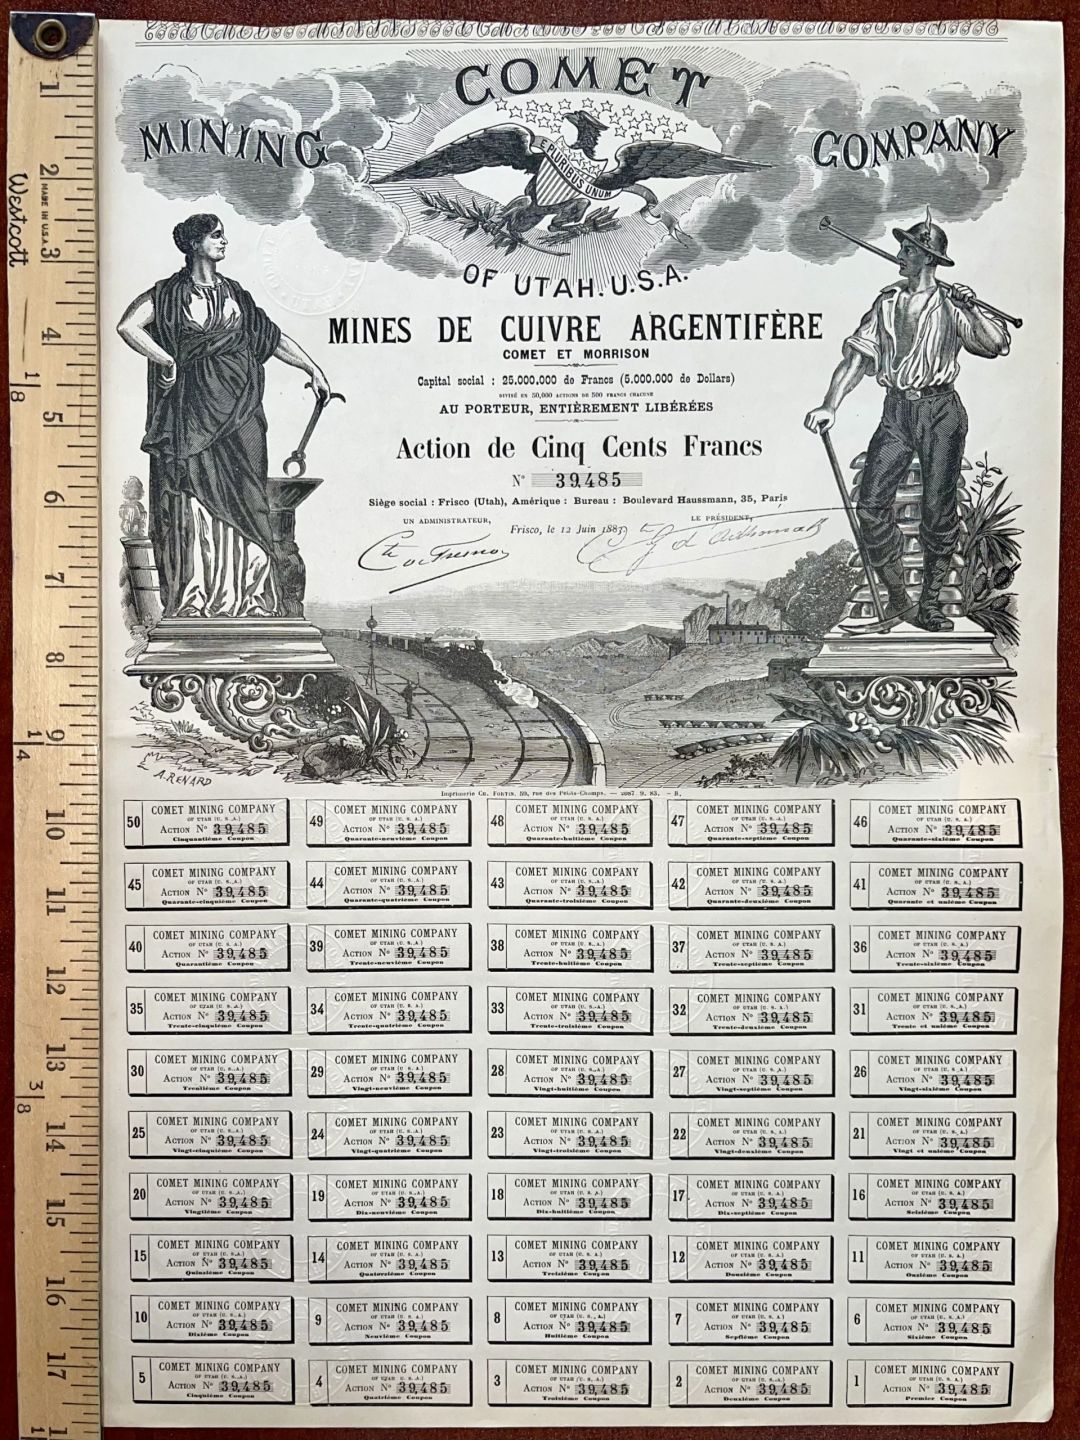 COMET
MINING COMPANY
E PLURIBUS UNUM
OF UTAH. U.S.A.
MINES DE CUIVRE ARGENTIFÈRE
COMET ET MORRISON
Capital social : 25.000.000 de Francs (5.000.000 de Dollars)
DIVISÉ EN 50,000 ACTIONS DE 500 FRANCS CHACUNE
AU PORTEUR, ENTIÈREMENT LIBÉRÉES
Action de Cinq Cents Francs
N° 39,485
Siège social : Frisco (Utah), Amérique : Bureau : Boulevard Haussmann, 35, Paris
UN ADMINISTRATEUR, LE PRÉSIDENT,
Frisco, le 12 Juin 1883
A. RENARD
Imprimerie CH. FORTIN, 59, rue des Petits-Champs. — 2087. 9. 83. - B.
50 COMET MINING COMPANY OF UTAH (U. S. A.) ACTION N° 39,485 Cinquantième Coupon
49 COMET MINING COMPANY OF UTAH (U. S. A.) ACTION N° 39,485 Quarante-neuvième Coupon
48 COMET MINING COMPANY OF UTAH (U. S. A.) ACTION N° 39,485 Quarante-huitième Coupon
47 COMET MINING COMPANY OF UTAH (U. S. A.) ACTION N° 39,485 Quarante-septième Coupon
46 COMET MINING COMPANY OF UTAH (U. S. A.) ACTION N° 39,485 Quarante-sixième Coupon
45 COMET MINING COMPANY OF UTAH (U. S. A.) ACTION N° 39,485 Quarante-cinquième Coupon
44 COMET MINING COMPANY OF UTAH (U. S. A.) ACTION N° 39,485 Quarante-quatrième Coupon
43 COMET MINING COMPANY OF UTAH (U. S. A.) ACTION N° 39,485 Quarante-troisième Coupon
42 COMET MINING COMPANY OF UTAH (U. S. A.) ACTION N° 39,485 Quarante-deuxième Coupon
41 COMET MINING COMPANY OF UTAH (U. S. A.) ACTION N° 39,485 Quarante et unième Coupon
40 COMET MINING COMPANY OF UTAH (U. S. A.) ACTION N° 39,485 Quarantième Coupon
39 COMET MINING COMPANY OF UTAH (U. S. A.) ACTION N° 39,485 Trente-neuvième Coupon
38 COMET MINING COMPANY OF UTAH (U. S. A.) ACTION N° 39,485 Trente-huitième Coupon
37 COMET MINING COMPANY OF UTAH (U. S. A.) ACTION N° 39,485 Trente-septième Coupon
36 COMET MINING COMPANY OF UTAH (U. S. A.) ACTION N° 39,485 Trente-sixième Coupon
35 COMET MINING COMPANY OF UTAH (U. S. A.) ACTION N° 39,485 Trente-cinquième Coupon
34 COMET MINING COMPANY OF UTAH (U. S. A.) ACTION N° 39,485 Trente-quatrième Coupon
33 COMET MINING COMPANY OF UTAH (U. S. A.) ACTION N° 39,485 Trente-troisième Coupon
32 COMET MINING COMPANY OF UTAH (U. S. A.) ACTION N° 39,485 Trente-deuxième Coupon
31 COMET MINING COMPANY OF UTAH (U. S. A.) ACTION N° 39,485 Trente et unième Coupon
30 COMET MINING COMPANY OF UTAH (U. S. A.) ACTION N° 39,485 Trentième Coupon
29 COMET MINING COMPANY OF UTAH (U. S. A.) ACTION N° 39,485 Vingt-neuvième Coupon
28 COMET MINING COMPANY OF UTAH (U. S. A.) ACTION N° 39,485 Vingt-huitième Coupon
27 COMET MINING COMPANY OF UTAH (U. S. A.) ACTION N° 39,485 Vingt-septième Coupon
26 COMET MINING COMPANY OF UTAH (U. S. A.) ACTION N° 39,485 Vingt-sixième Coupon
25 COMET MINING COMPANY OF UTAH (U. S. A.) ACTION N° 39,485 Vingt-cinquième Coupon
24 COMET MINING COMPANY OF UTAH (U. S. A.) ACTION N° 39,485 Vingt-quatrième Coupon
23 COMET MINING COMPANY OF UTAH (U. S. A.) ACTION N° 39,485 Vingt-troisième Coupon
22 COMET MINING COMPANY OF UTAH (U. S. A.) ACTION N° 39,485 Vingt-deuxième Coupon
21 COMET MINING COMPANY OF UTAH (U. S. A.) ACTION N° 39,485 Vingt et unième Coupon
20 COMET MINING COMPANY OF UTAH (U. S. A.) ACTION N° 39,485 Vingtième Coupon
19 COMET MINING COMPANY OF UTAH (U. S. A.) ACTION N° 39,485 Dix-neuvième Coupon
18 COMET MINING COMPANY OF UTAH (U. S. A.) ACTION N° 39,485 Dix-huitième Coupon
17 COMET MINING COMPANY OF UTAH (U. S. A.) ACTION N° 39,485 Dix-septième Coupon
16 COMET MINING COMPANY OF UTAH (U. S. A.) ACTION N° 39,485 Seizième Coupon
15 COMET MINING COMPANY OF UTAH (U. S. A.) ACTION N° 39,485 Quinzième Coupon
14 COMET MINING COMPANY OF UTAH (U. S. A.) ACTION N° 39,485 Quatorzième Coupon
13 COMET MINING COMPANY OF UTAH (U. S. A.) ACTION N° 39,485 Treizième Coupon
12 COMET MINING COMPANY OF UTAH (U. S. A.) ACTION N° 39,485 Douzième Coupon
11 COMET MINING COMPANY OF UTAH (U. S. A.) ACTION N° 39,485 Onzième Coupon
10 COMET MINING COMPANY OF UTAH (U. S. A.) ACTION N° 39,485 Dixième Coupon
9 COMET MINING COMPANY OF UTAH (U. S. A.) ACTION N° 39,485 Neuvième Coupon
8 COMET MINING COMPANY OF UTAH (U. S. A.) ACTION N° 39,485 Huitième Coupon
7 COMET MINING COMPANY OF UTAH (U. S. A.) ACTION N° 39,485 Septième Coupon
6 COMET MINING COMPANY OF UTAH (U. S. A.) ACTION N° 39,485 Sixième Coupon
5 COMET MINING COMPANY OF UTAH (U. S. A.) ACTION N° 39,485 Cinquième Coupon
4 COMET MINING COMPANY OF UTAH (U. S. A.) ACTION N° 39,485 Quatrième Coupon
3 COMET MINING COMPANY OF UTAH (U. S. A.) ACTION N° 39,485 Troisième Coupon
2 COMET MINING COMPANY OF UTAH (U. S. A.) ACTION N° 39,485 Deuxième Coupon
1 COMET MINING COMPANY OF UTAH (U. S. A.) ACTION N° 39,485 Premier Coupon
Westcott
MADE IN U.S.A.
1 2 3 4 5 6 7 8 9 10 11 12 13 14 15 16 17
1/8
1/4
3/8